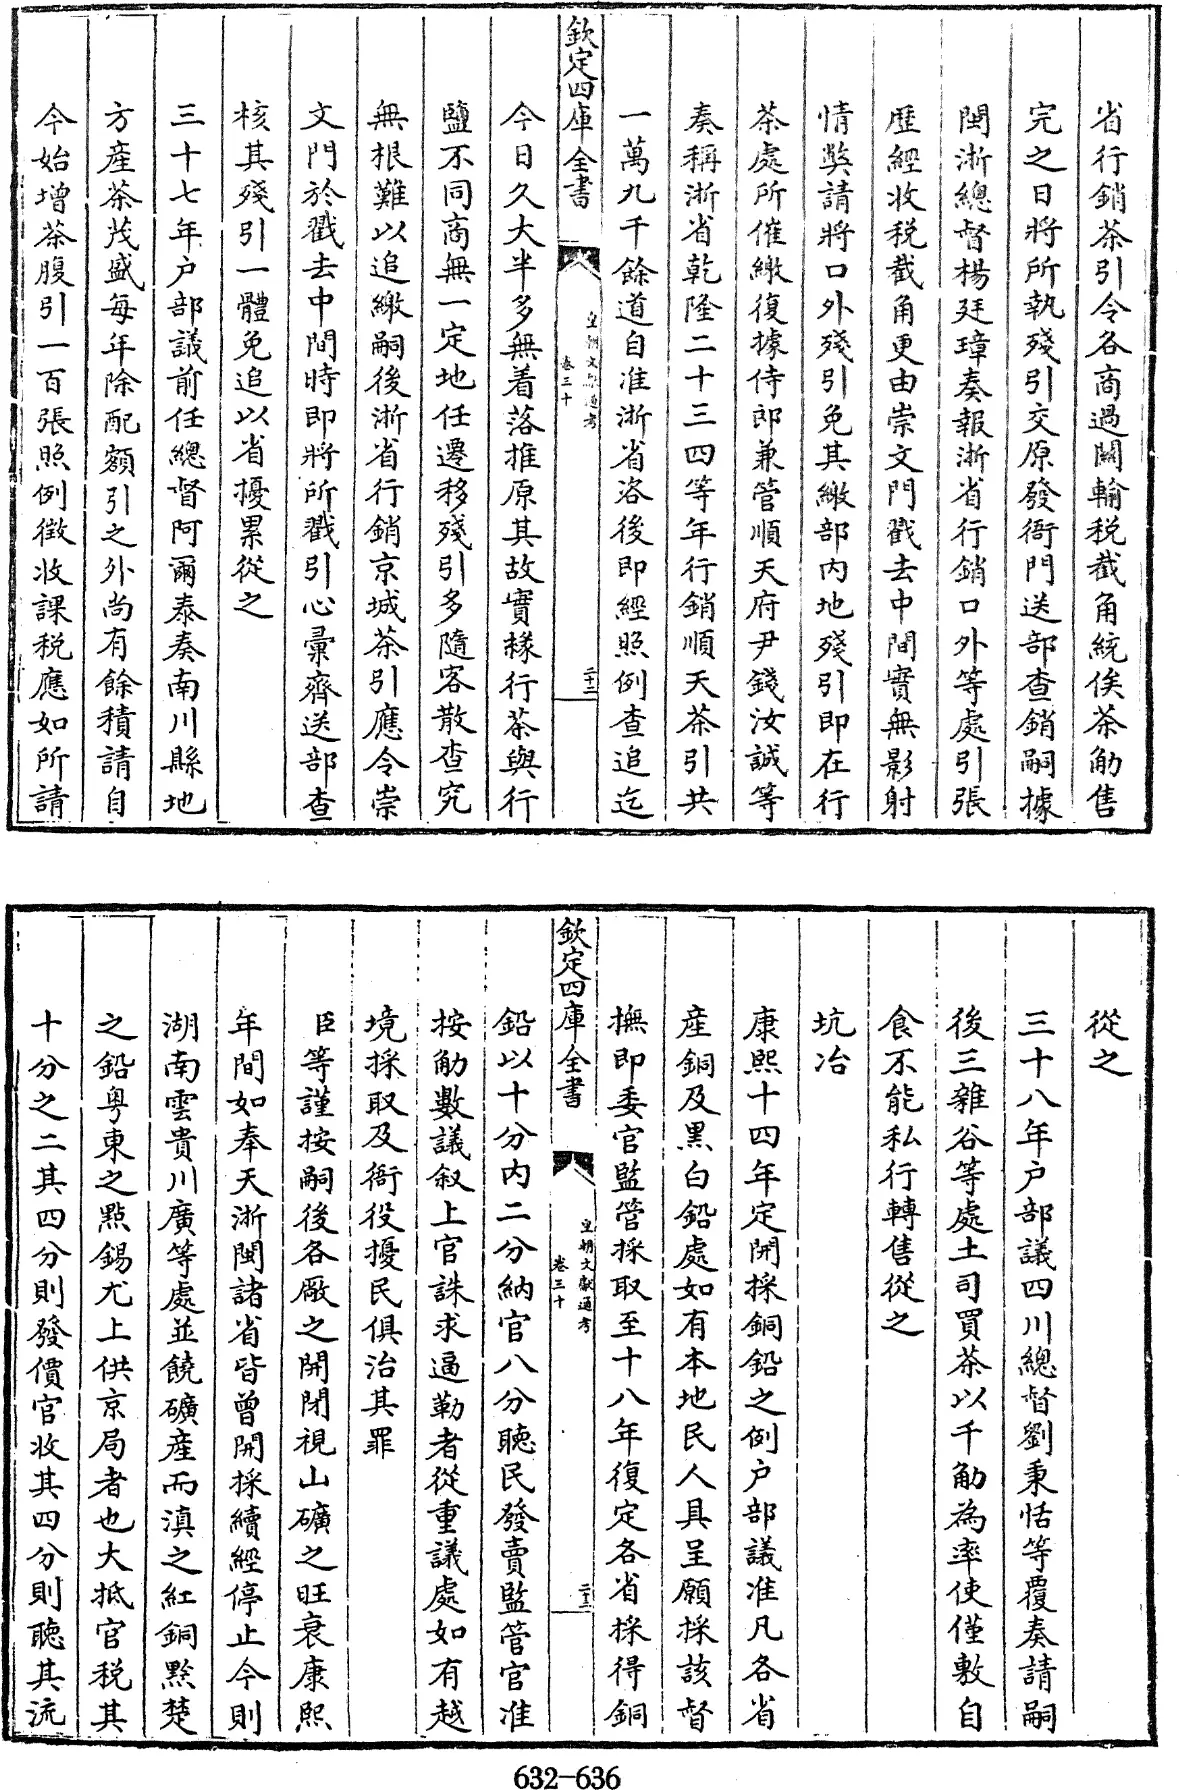 省行銷茶引令各商過關輸税截角統俟茶觔售
完之日將所執殘引交原發衙門送部查銷嗣據
閩浙總督楊廷璋奏報浙省行銷口外等處引張
歴經收税截角更由崇文門戳去中間實無影射
情獘請將口外殘引免其繳部内地殘引即在行
茶處所催繳復據侍郎兼管順天府尹錢汝誠等
奏稱浙省乾隆二十三四等年行銷順天茶引共
一萬九千餘道自准浙省咨後即經照例查追迄
欽定四庫全書
皇朝文獻通考
卷三十
二十二
今日久大半多無着落推原其故實縁行茶與行
鹽不同商無一定地任遷移殘引多隨客散查究
無根難以追繳嗣後浙省行銷京城茶引應令崇
文門於戳去中間時即將所戳引心彚齊送部查
核其殘引一體免追以省擾累從之
三十七年户部議前任總督阿爾泰奏南川縣地
方産茶茂盛每年除配額引之外尚有餘積請自
今始增茶腹引一百張照例徴收課税應如所請
從之
三十八年户部議四川總督劉秉恬等覆奏請嗣
後三雜谷等處土司買茶以千觔為率使僅敷自
食不能私行轉售從之
坑冶
康熙十四年定開採銅鉛之例户部議准凡各省
産銅及黒白鉛處如有本地民人具呈願採該督
撫即委官監管採取至十八年復定各省採得銅
欽定四庫全書
皇朝文獻通考
卷三十
二十三
鉛以十分内二分納官八分聽民發賣監管官准
按觔數議叙上官誅求逼勒者從重議處如有越
境採取及衙役擾民俱治其罪
臣等謹按嗣後各廠之開閉視山礦之旺衰康熙
年間如奉天浙閩諸省皆曾開採續經停止今則
湖南雲貴川廣等處並饒礦産而滇之紅銅黔楚
之鉛粤東之點錫尤上供京局者也大抵官税其
十分之二其四分則發價官收其四分則聽其流
632-636